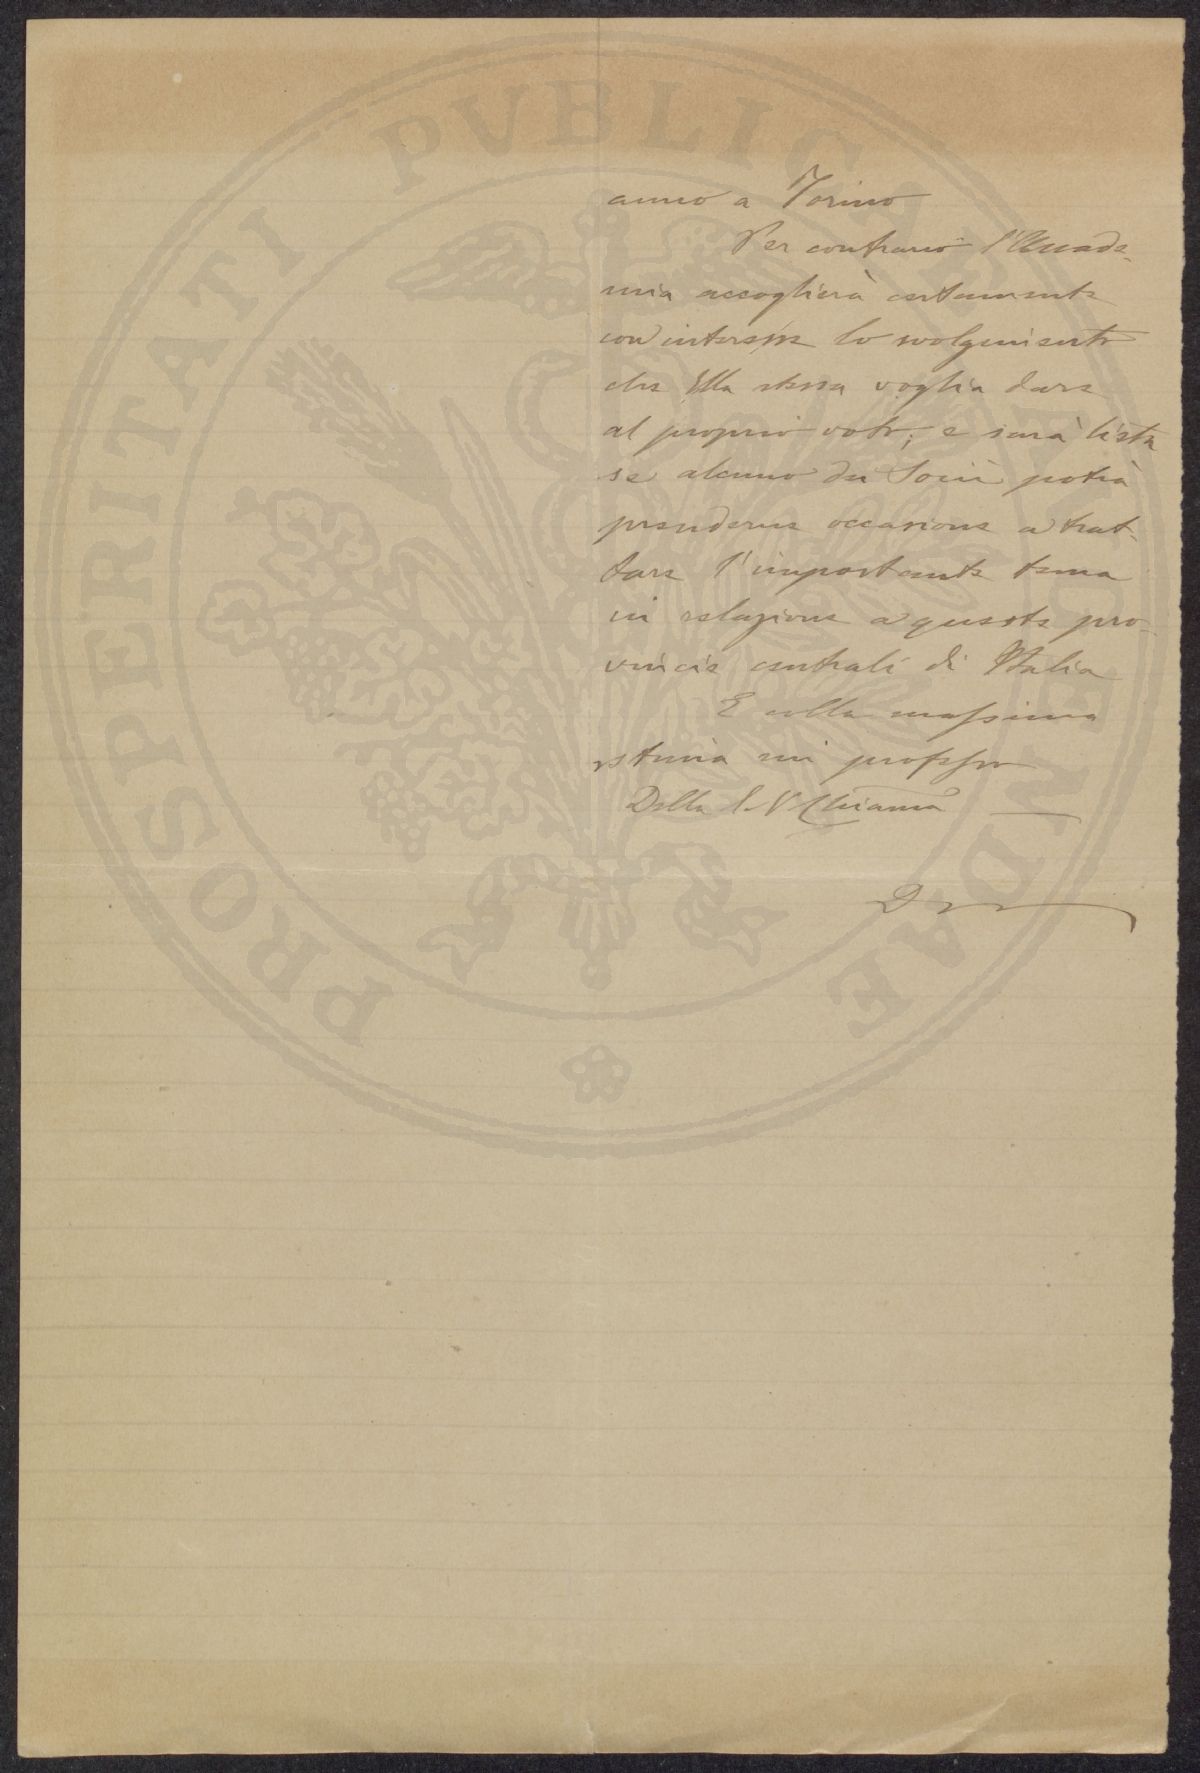 PROSPERITATI PVBLICAE AVGENDAE
anno a Torino
Per contrario l'Accade-
mia accoglierà certamente
con interesse lo svolgimento
che Ella stessa voglia dare
al proprio voto; e sarà lieta
se alcuno dei Socii potrà
prenderne occasione a trat-
tare l'importante tema
in relazione a queste pro-
vincie centrali di Italia
E colla massima
stima mi professo
Della S. V. Chiarma